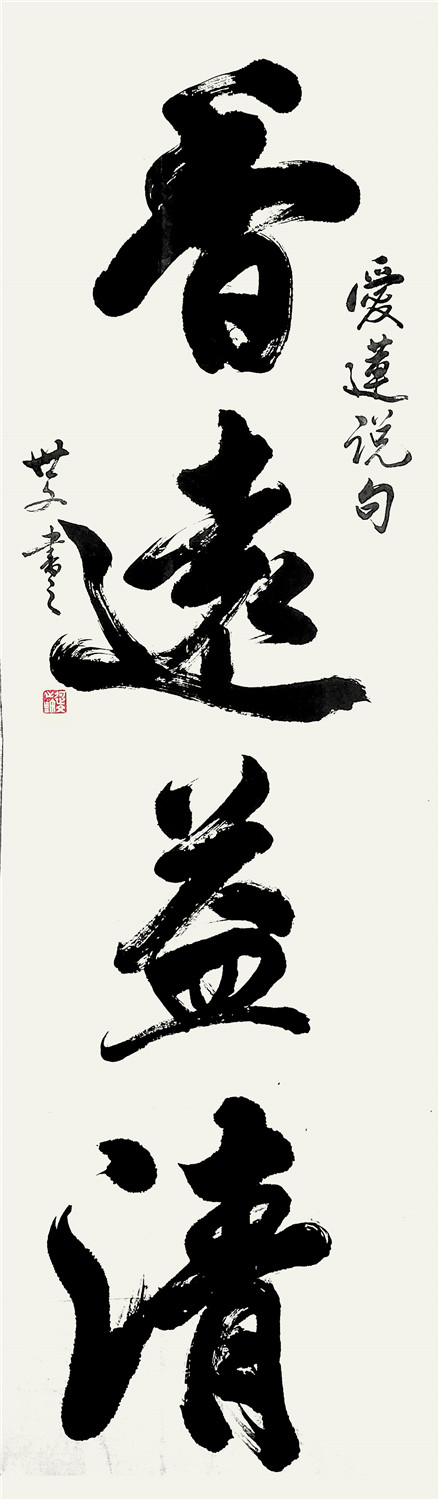 愛蓮説句
香遠益清
世文書之